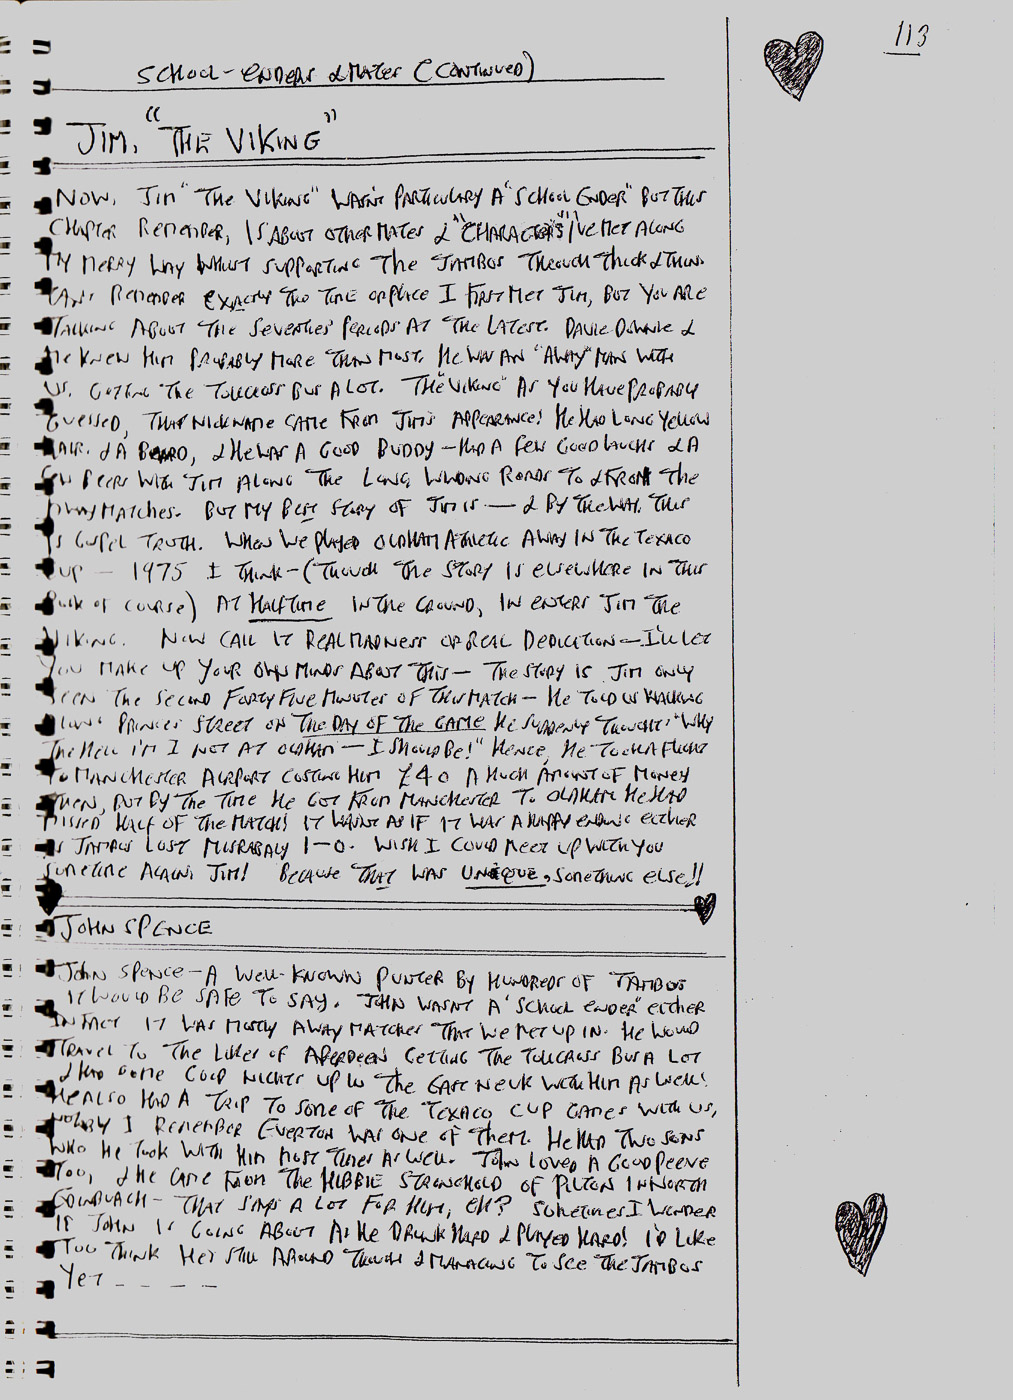 113
SCHOOL-ENDERS & MATES (CONTINUED)
JIM, "THE VIKING"
NOW, JIM "THE VIKING" WASN'T PARTICULARY A "SCHOOL ENDER" BUT THIS
CHAPTER REMEMBER, IS ABOUT OTHER MATES & "CHARACTERS" I'VE MET ALONG
MY MERRY WAY WHILST SUPPORTING THE JAMBOS THROUGH THICK & THIN.
CAN'T REMEMBER EXACTLY THE TIME OR PLACE I FIRST MET JIM, BUT YOU ARE
TALKING ABOUT THE SEVENTIES PERIODS AT THE LATEST. DAVIE DOWNIE &
ME KNEW HIM PROBABLY MORE THAN MOST. HE WAS AN "AWAY" MAN WITH
US, GETTING THE TOLLCROSS BUS A LOT. THE "VIKING" AS YOU HAVE PROBABLY
GUESSED, THAT NICKNAME CAME FROM JIM'S APPEARANCE! HE HAD LONG YELLOW
HAIR & A BEARD, & HE WAS A GOOD BUDDY - HAD A FEW GOOD LAUGHS & A
FEW BEERS WITH JIM ALONG THE LONG, WINDING ROADS TO & FROM THE
AWAY MATCHES. BUT MY BEST STORY OF JIM IS — & BY THE WAY, THIS
IS GOSPEL TRUTH. WHEN WE PLAYED OLDHAM ATHLETIC AWAY IN THE TEXACO
CUP - 1975 I THINK - (THOUGH THE STORY IS ELSEWHERE IN THIS
BOOK OF COURSE) AT HALFTIME IN THE GROUND, IN ENTERS JIM THE
VIKING. NOW CALL IT REAL MADNESS OR REAL DEDICTION - I'LL LET
YOU MAKE UP YOUR OWN MINDS ABOUT THIS - THE STORY IS JIM ONLY
SEEN THE SECOND FORTY FIVE MINUTES OF THIS MATCH - HE TOLD US WALKING
ALONG PRINCES STREET ON THE DAY OF THE GAME HE SUDDENLY THOUGHT "WHY
THE HELL I'M I NOT AT OLDHAM - I SHOULD BE!" HENCE, HE TOOK A FLIGHT
TO MANCHESTER AIRPORT COSTING HIM £40 A HUGH AMOUNT OF MONEY
THEN, BUT BY THE TIME HE GOT FROM MANCHESTER TO OLDHAM HE HAD
MISSED HALF OF THE MATCH! IT WASN'T AS IF IT WAS A HAPPY ENDING EITHER
AS JAMBOS LOST MISRABALY 1-0. WISH I COULD MEET UP WITH YOU
SOMETIME AGAIN, JIM! BECAUSE THAT WAS UNIQUE, SOMETHING ELSE!!
JOHN SPENCE
JOHN SPENCE - A WELL-KNOWN PUNTER BY HUNDREDS OF JAMBOS
IT WOULD BE SAFE TO SAY. JOHN WASN'T A "SCHOOL ENDER" EITHER
IN FACT IT WAS MOSTLY AWAY MATCHES THAT WE MET UP IN. HE WOULD
TRAVEL TO THE LIKES OF ABERDEEN GETTING THE TOLLCROSS BUS A LOT
& HAD SOME GOOD NIGHTS UP IN THE EAST NEUK WITH HIM AS WELL!
HE ALSO HAD A TRIP TO SOME OF THE TEXACO CUP GAMES WITH US,
I REMEMBER EVERTON WAS ONE OF THEM. HE HAD TWO SONS
WHO HE TOOK WITH HIM MOST TIMES AS WELL. JOHN LOVED A GOOD PEEVE
TOO, & HE CAME FROM THE HIBBIE STRONGHOLD OF PILTON IN NORTH
EDINBURGH - THAT SAYS A LOT FOR HIM, EH? SOMETIMES I WONDER
IF JOHN IS GOING ABOUT AS HE DRUNK HARD & PLAYED HARD! I'D LIKE
TOO THINK HE'S STILL AROUND THOUGH & MANAGING TO SEE THE JAMBOS
YET _ _ _ _